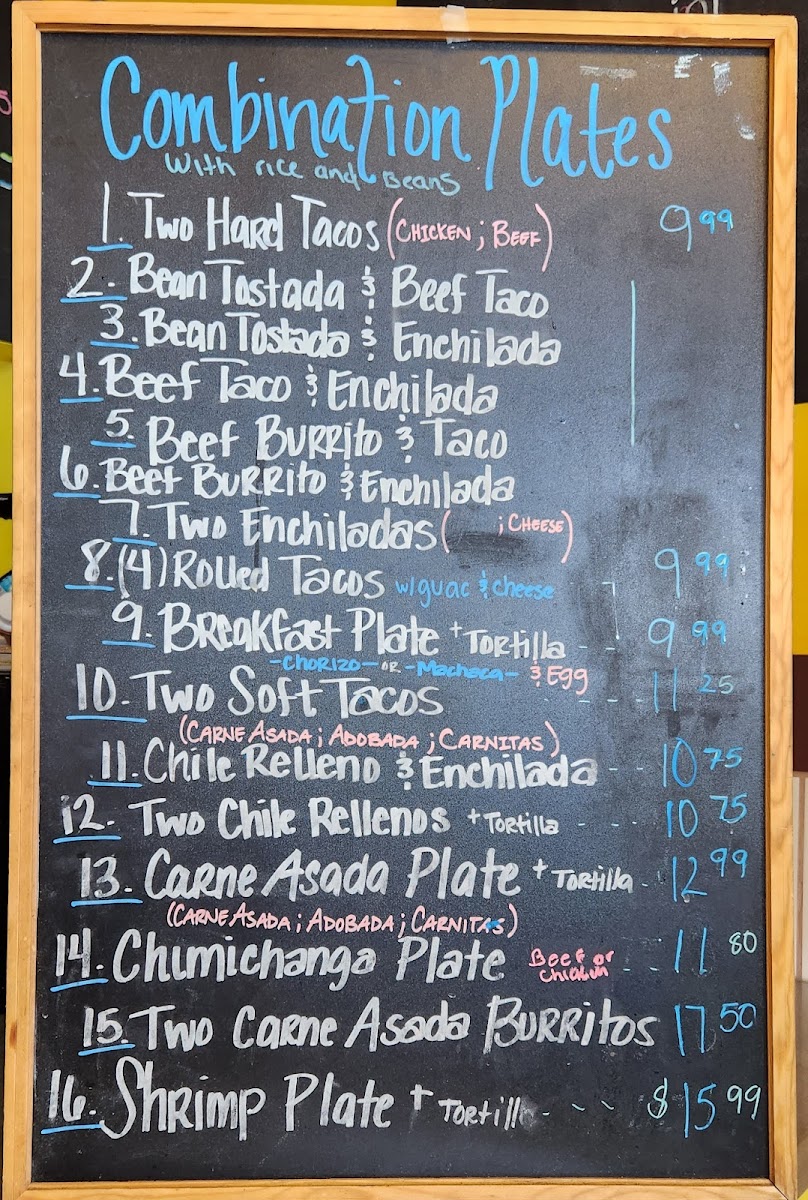 Combination Plates
With rice and Beans
1. Two Hard Tacos (Chicken ; Beef) 9 99
2. Bean Tostada & Beef Taco
3. Bean Tostada & Enchilada
4. Beef Taco & Enchilada
5. Beef Burrito & Taco
6. Beef Burrito & Enchilada
7. Two Enchiladas ( ; Cheese)
8. (4) Rolled Tacos w/guac & cheese - 9 99
9. Breakfast Plate + Tortilla - 9 99
- Chorizo - or - Machaca - & Egg
10. Two Soft Tacos 11 25
(Carne Asada ; Adobada ; Carnitas)
11. Chile Relleno & Enchilada - - 10 75
12. Two Chile Rellenos + Tortilla - - - 10 75
13. Carne Asada Plate + Tortilla - 12 99
(Carne Asada ; Adobada ; Carnitas)
14. Chimichanga Plate Beef or Chicken - - 11 80
15. Two Carne Asada Burritos 17 50
16. Shrimp Plate + Tortill - - - $15 99